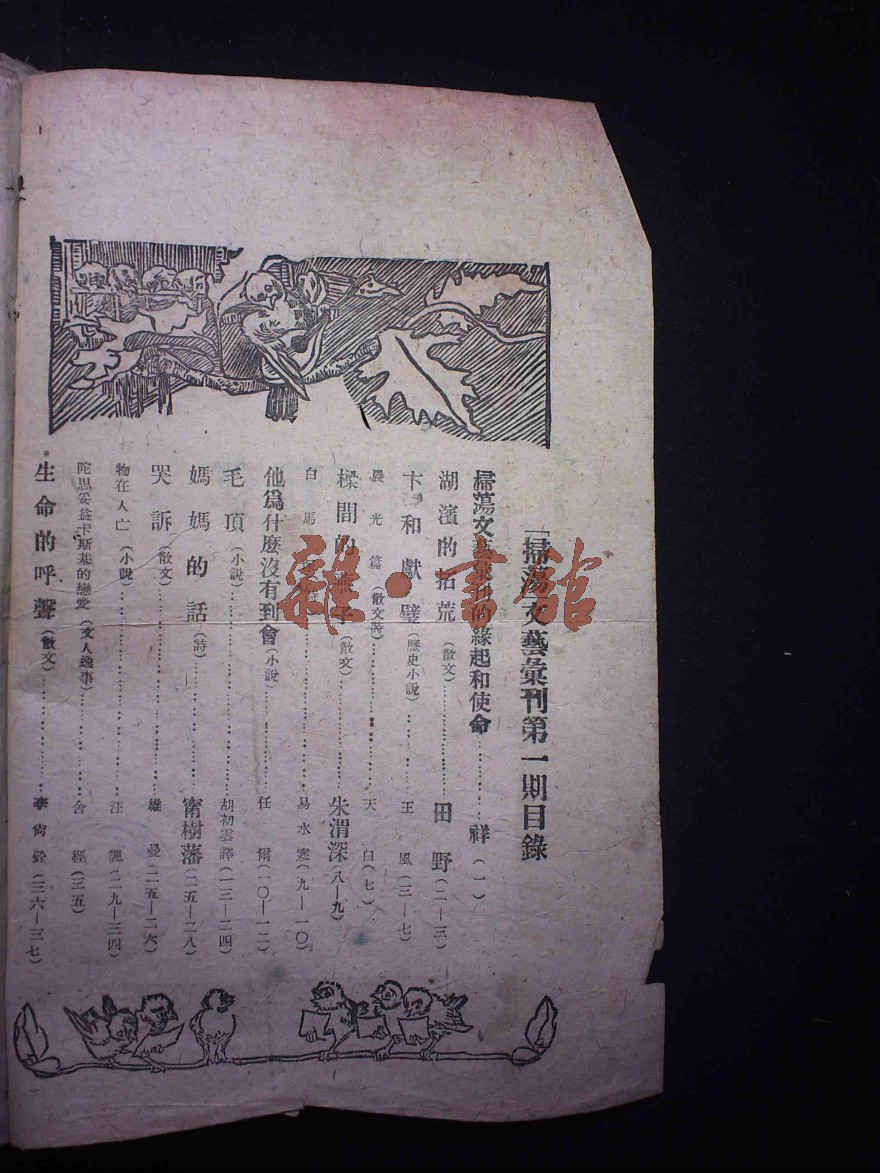 「掃蕩文藝彙刊第一期目錄
掃蕩文藝彙刊的緣起和使命…………祥(一)
湖濱的拾荒(散文)…………田野(二—三)
卞和獻璧(歷史小說)…………王風(三—七)
晨光篇(散文詩)…………天白(七)
樑間的燕子(散文)…………朱渭深(八—九)
白馬…………易水寒(九—一〇)
他爲什麼沒有到會(小說)…………任爾(一〇—一二)
毛頂(小說)…………胡初雲譯(一三—二四)
媽媽的話(詩)…………甯樹藩(二五—二八)
哭訴(散文)…………維曼(二五—二六)
物在人亡(小說)…………汪諷(二九—三四)
陀思妥益卡斯基的戀愛(文人逸事)…………舍經(三五)
生命的呼聲(散文)…………李尙銓(三六—三七)
雜·書館